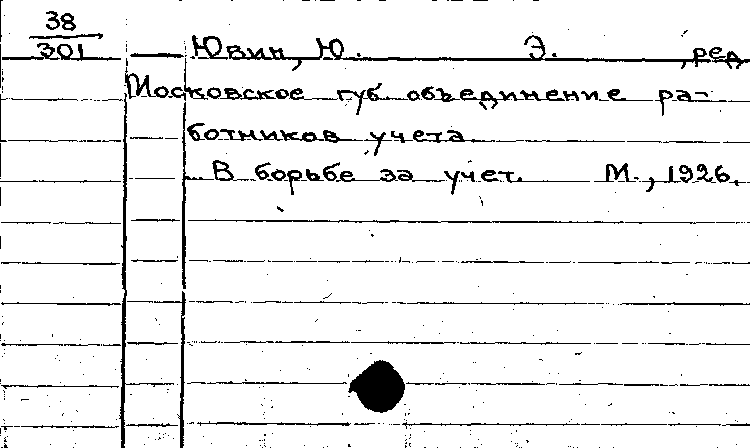 38
301
Ювин, Ю. Э. , ред
Московское губ. объединение ра-
ботников учета
В борьбе за учет. М., 1926.